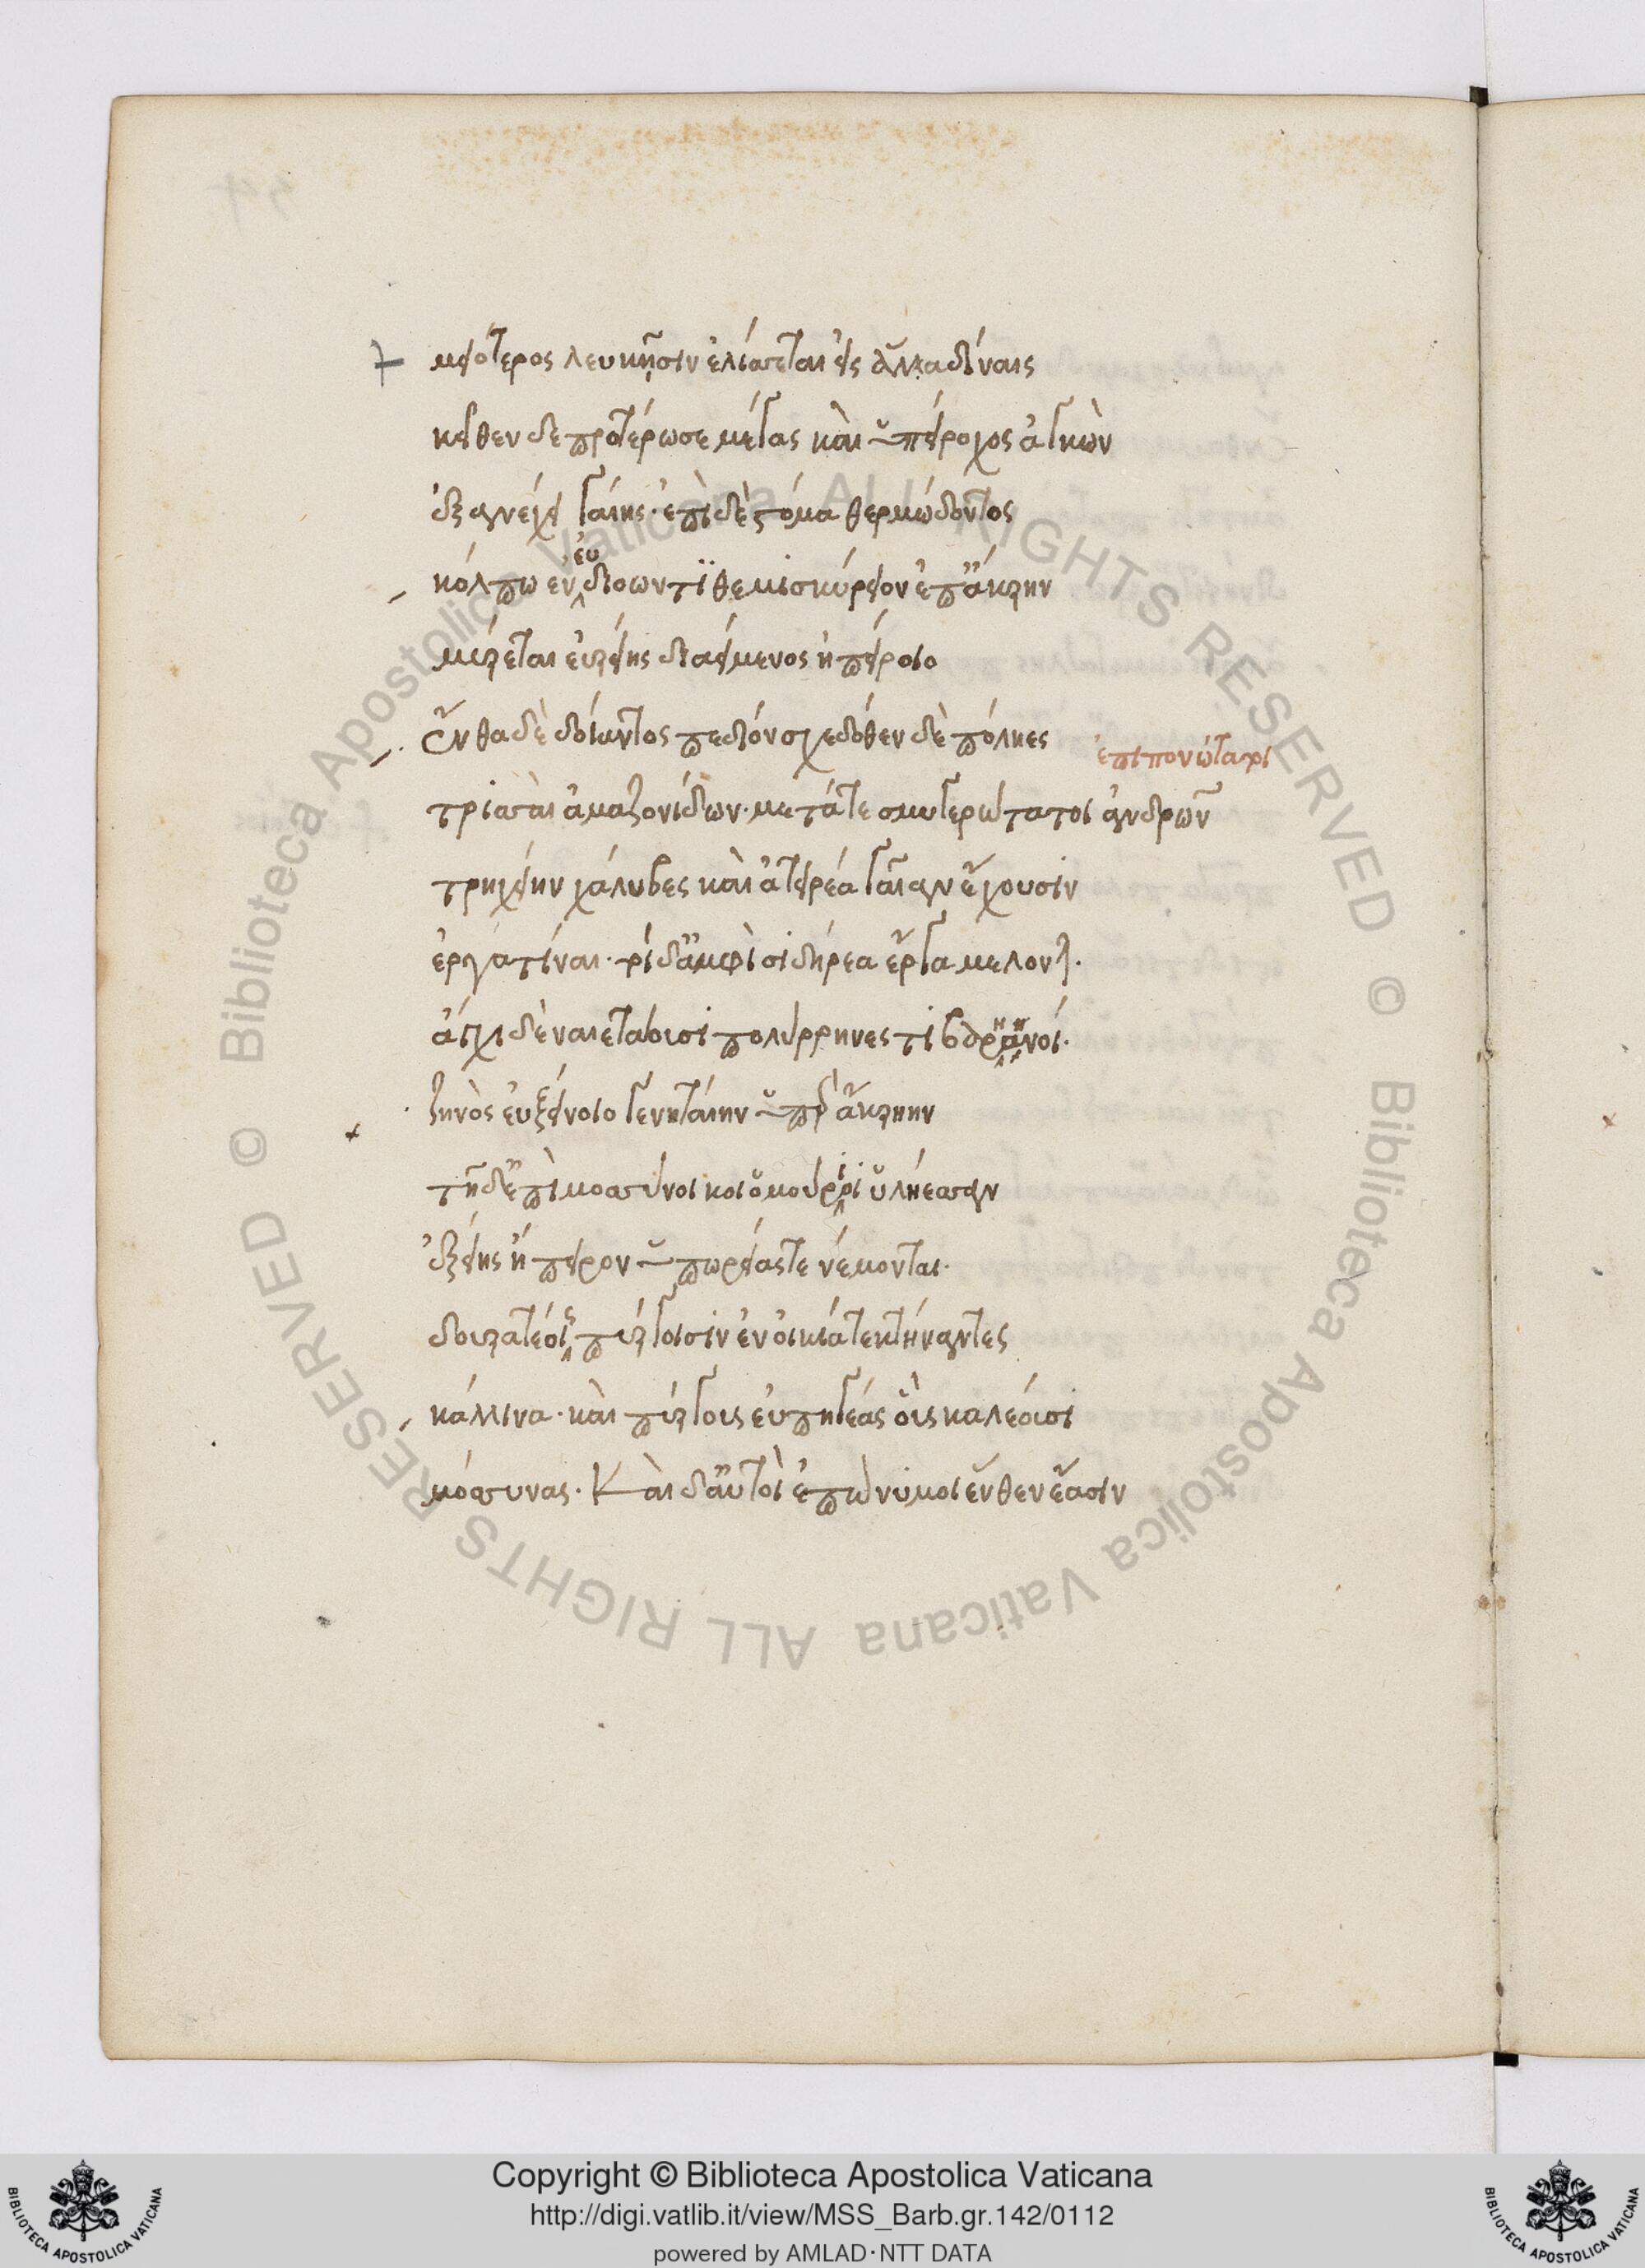 μειότερος λευκῆσιν ἑλίσσεται εἰς ἅλα δίναις
κεῖθεν δὲ προτέρωσε μέγας καὶ ὑπείροχος ἀγκὼν
ἐξανέχει γαίης· ἐπὶ δὲ στόμα θερμώδοντος
ευ
κόλπω ἐν διοωντι θεμισκύρειον ἐπ' ἄκρην
μύρεται εὐρείης διαείμενος ἠπείροιο
ἔνθα δὲ δοίαντος πεδίον σχεδόθεν δὲ πόληες
ἐπιπονώταροι
τρισσαὶ ἀμαζονίδων· μετά τε σμυγερώτατοι ἀνδρῶν
τρηχείην χάλυβες καὶ ἀτειρέα γαῖαν ἔχουσιν
ἐργατίναι· τοὶ δ' ἀμφὶ σιδήρεα ἔργα μέλονται.
ἄγχι δὲ ναιετάουσι πολύρρηνες τιβαρηνοί.
ζηνὸς εὐξείνοιο γενηταίην ὑπὲρ ἄκρηην
τῆ δ' ἐπὶ μοσσύνοικοι ὁμούροι ὑλήεσσαν
ἑξείης ἤπειρον ὑπωρείας τε νέμονται.
δουρατέοις πύργοισιν ἐν οἰκία τεκτήναντες
κάλλινα· καὶ πύργους εὐπηγέας οὓς καλέουσι
μόσσυνας. Καὶ δ' αὐτοὶ ἐπώνυμοι ἔνθεν ἔασιν
Copyright © Biblioteca Apostolica Vaticana
http://digi.vatlib.it/view/MSS_Barb.gr.142/0112
powered by AMLAD·NTT DATA
BIBLIOTECA APOSTOLICA VATICANA
BIBLIOTECA APOSTOLICA VATICANA
© Biblioteca Apostolica Vaticana ALL RIGHTS RESERVED
© Biblioteca Apostolica Vaticana ALL RIGHTS RESERVED